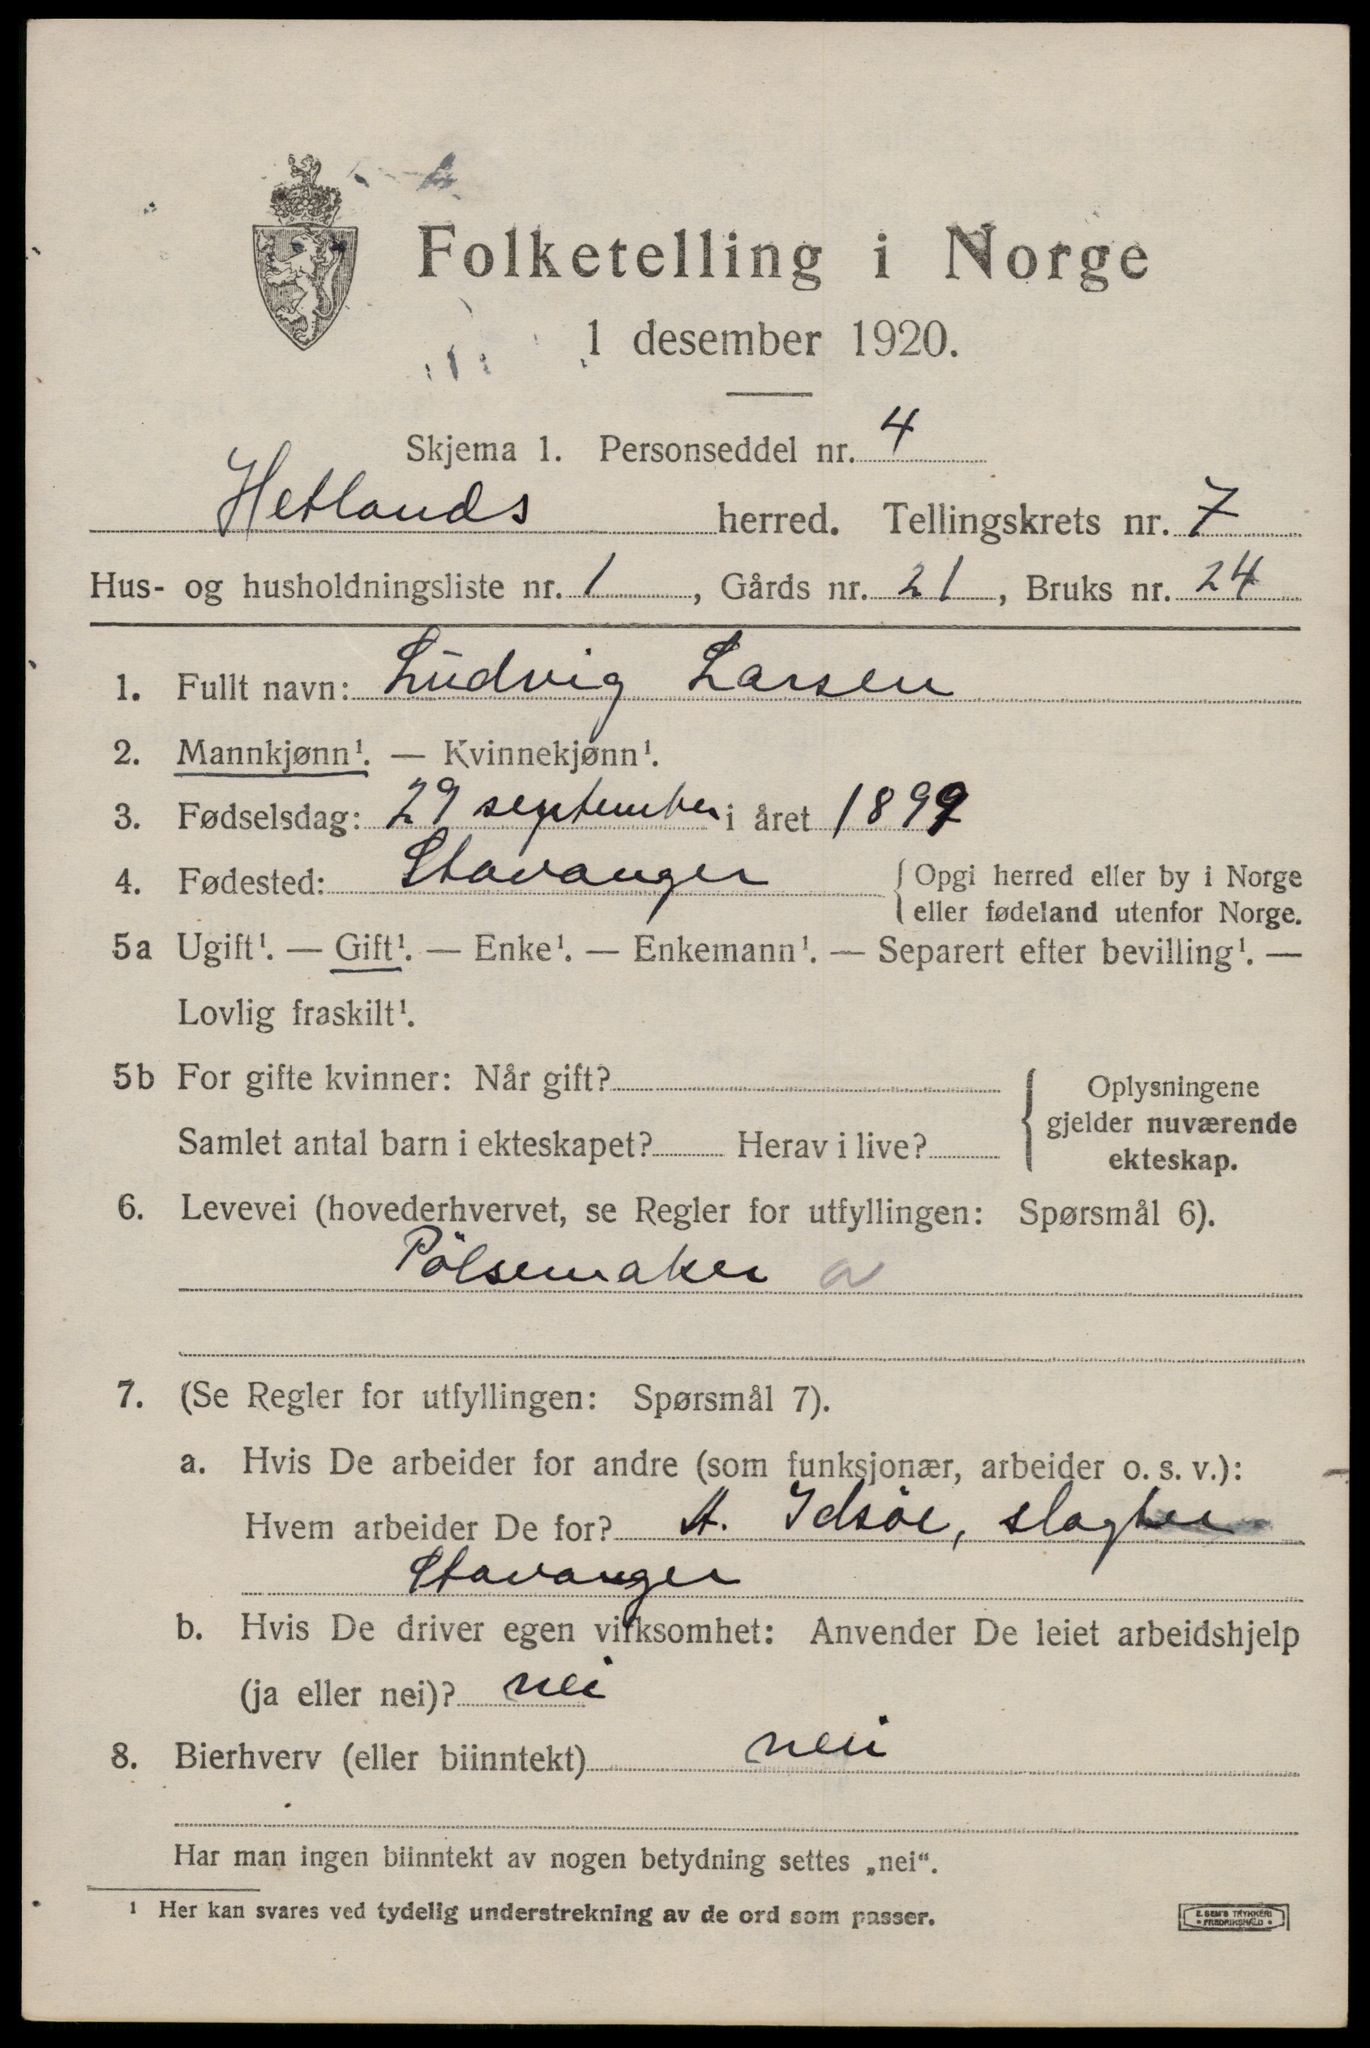 Folketelling i Norge
1 desember 1920.
Skjema 1. Personseddel nr. 4
Hetlands herred. Tellingskrets nr. 7
Hus- og husholdningsliste nr. 1, Gårds nr. 21, Bruks nr. 24
1. Fullt navn: Ludvig Larsen
2. Mannkjønn¹. — Kvinnekjønn¹.
3. Fødselsdag: 29 september i året 1899
4. Fødested: Stavanger { Opgi herred eller by i Norge
eller fødeland utenfor Norge.
5a Ugift¹. — Gift¹. — Enke¹. — Enkemann¹. — Separert efter bevilling¹. —
Lovlig fraskilt¹.
5b For gifte kvinner: Når gift? { Oplysningene
gjelder nuværende
Samlet antal barn i ekteskapet? Herav i live? ekteskap.
6. Levevei (hovederhvervet, se Regler for utfyllingen: Spørsmål 6).
Pölsemaker a
7. (Se Regler for utfyllingen: Spørsmål 7).
a. Hvis De arbeider for andre (som funksjonær, arbeider o. s. v.):
Hvem arbeider De for? A. Idsöe, slagter
Stavanger
b. Hvis De driver egen virksomhet: Anvender De leiet arbeidshjelp
(ja eller nei)? nei
8. Bierhverv (eller biinntekt) nei
Har man ingen biinntekt av nogen betydning settes „nei“.
¹ Her kan svares ved tydelig understrekning av de ord som passer.
E. SEM'S TRYKKERI
FREDRIKSHALD